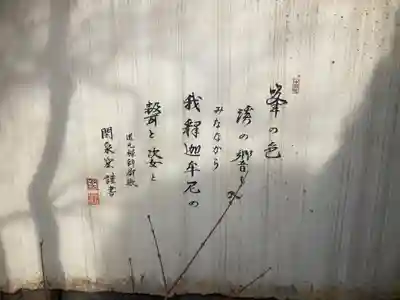 峰の色
渓の響も
みなながら
我釋迦牟尼の
聲と姿と
道元禅師御歌
謹書